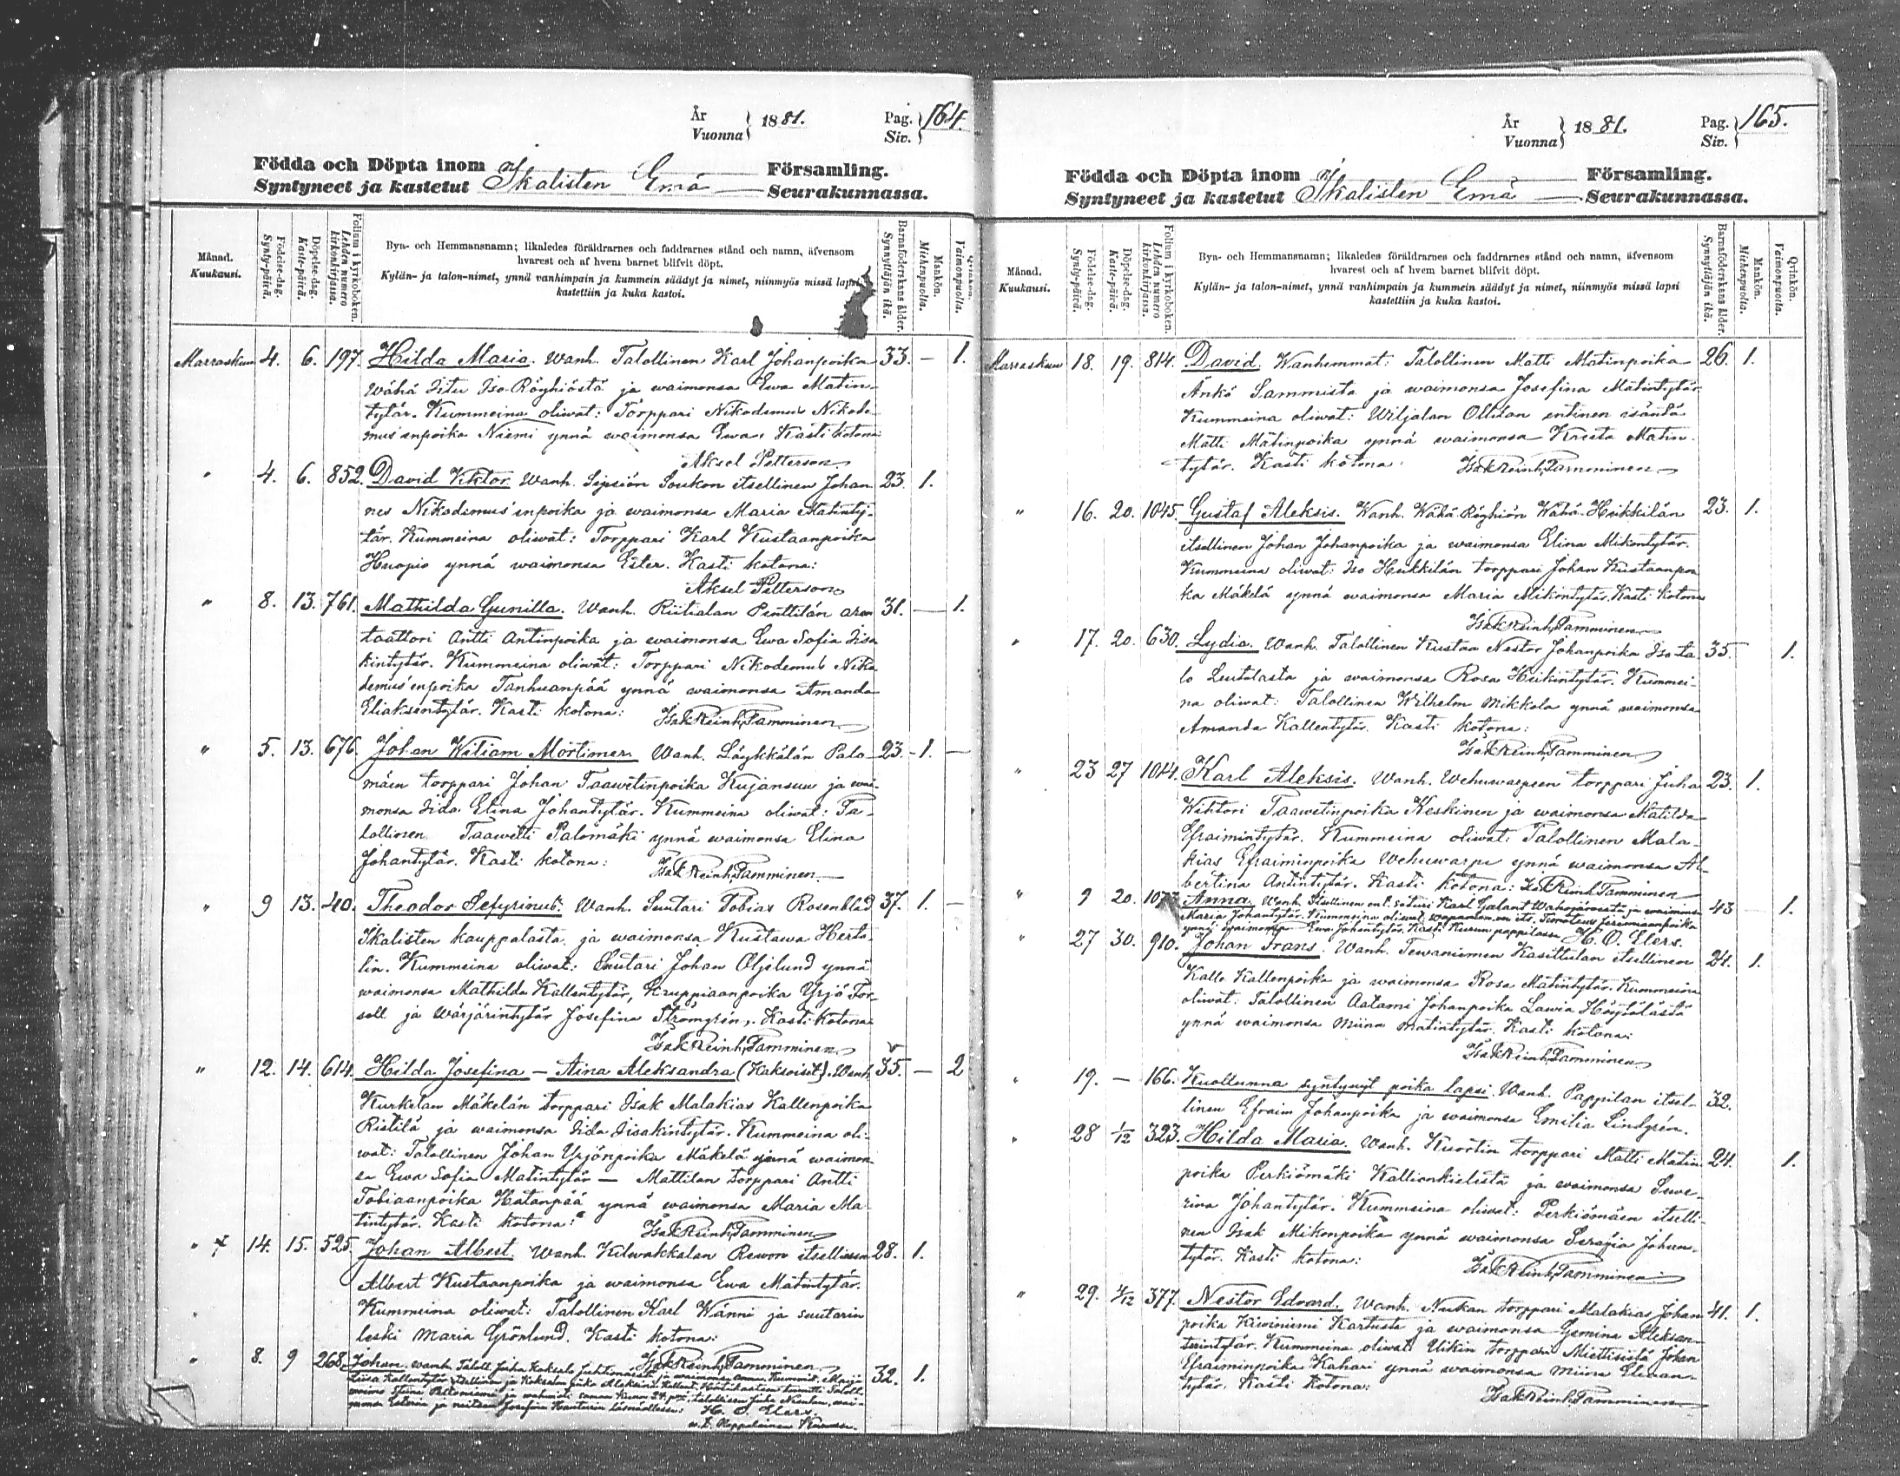 År
Vuonna } 1881.
Pag.
Siv. } 164.
Födda och Döpta inom
Syntyneet ja kastetut Ikalisten Emä Församling.
Seurakunnassa.
Månad.
Kuukausi.
Födelse-dag.
Synty-päivä.
Döpelse-dag.
Kaste-päivä.
Folium i kyrkoboken.
Lehden numero kirkonkirjassa.
Bya- och Hemmansnamn; likaledes föräldrarnes och faddrarnes stånd och namn, äfvensom
hvarest och af hvem barnet blifvit döpt.
Kylän- ja talon-nimet, ynnä vanhimpain ja kummein säädyt ja nimet, niinmyös missä lapsi
kastettiin ja kuka kastoi.
Barnaföderskans ålder.
Synnyttäjän ikä.
Mankön.
Miehenpuolta.
Qvinkön.
Vaimonpuolta.
Marraskuu 4. 6. 197. Hilda Maria. Wanh. Talollinen Karl Johanpoika 33. — 1.
Wähä Iitu Iso-Röyhiöstä ja waimonsa Ewa Matin-
tytär. Kummeina oliwat: Torppari Nikodemus Nikode-
mus'enpoika Niemi ynnä waimonsa Ewa. Kasti kotona:
Aksel Petterson
" 4. 6. 852. David Viktor. Wanh. Sipsiön Soukon itsellinen Johan 23. 1.
nes Nikodemus'enpoika ja waimonsa Maria Matinty-
tär. Kummeina oliwat: Torppari Karl Kustaanpoika
Huopio ynnä waimonsa Ester. Kasti kotona:
Aksel Petterson
" 8. 13. 761. Mathilda Gunilla. Wanh. Riitialan Penttilän aren 31. — 1.
taattori Antti Antinpoika ja waimonsa Ewa Sofia Iisa
kintytär. Kummeina oliwat: Torppari Nikodemus Niko
demus'enpoika Tanhuanpää ynnä waimonsa Amanda
Eliaksentytär. Kasti kotona: Isak Reinh. Tamminen
" 5. 13. 676. Johan Wiliam Mortimer. Wanh. Läykkälän Palo- 23 - 1. —
mäen torppari Johan Taawetinpoika Kujansuu ja wai-
monsa Iida Elina Johantytär. Kummeina oliwat: Ta-
lollinen Taawetti Palomäki ynnä waimonsa Elina
Johantytär. Kasti kotona: Isak Reinh. Tamminen
" 9 13. 40. Theodor Sefyrinus. Wanh. Suutari Tobias Rosenblad 37. 1. —
Ikalisten kauppalasta ja waimonsa Kustawa Herto-
lin. Kummeina oliwat: Suutari Johan Öljelund ynnä
waimonsa Mathilda Kallentytär, Kruppiaanpoika Yrjö For-
sell ja wärjärintytär Josefina Strömgrén. Kasti kotona
Isak Reinh. Tamminen
" 12. 14. 614. Hilda Josefina — Aina Aleksandra (Kaksoiset). Wanh. 35. — 2
Kurkelan Mäkelän torppari Isak Malakias Kallenpoika
Ristilä ja waimonsa Iida Iisakintytär. Kummeina oli-
wat: Talollinen Johan Yrjönpoika Mäkelä ynnä waimon
sa Ewa Sofia Matintytär — Mattilan torppari Antti
Tobiaanpoika Hatanpää ynnä waimonsa Maria Ma
tintytär. Kasti kotona: Isak Reinh. Tamminen
" 14. 15. 525. Johan Albert. Wanh. Kilwakkalan Rewon itsellinen 28. 1.
Albert Kustaanpoika ja waimonsa Ewa Matintytär.
Kummeina oliwat: Talollinen Karl Wänni ja suutarin
leski Maria Grönlund. Kasti kotona:
Isak Reinh. Tamminen
" 8. 9 268. Johan. Wanh. Taloll. Juha 32. 1.
Liisa Kallentytär
H. O. Elers.
År
Vuonna } 1881.
Pag.
Siv. } 165.
Födda och Döpta inom
Syntyneet ja kastetut Ikalisten Emä Församling.
Seurakunnassa.
Månad.
Kuukausi.
Födelse-dag.
Synty-päivä.
Döpelse-dag.
Kaste-päivä.
Folium i kyrkoboken.
Lehden numero kirkonkirjassa.
Bya- och Hemmansnamn; likaledes föräldrarnes och faddrarnes stånd och namn, äfvensom
hvarest och af hvem barnet blifvit döpt.
Kylän- ja talon-nimet, ynnä vanhimpain ja kummein säädyt ja nimet, niinmyös missä lapsi
kastettiin ja kuka kastoi.
Barnaföderskans ålder.
Synnyttäjän ikä.
Mankön.
Miehenpuolta.
Qvinkön.
Vaimonpuolta.
Marraskuu 18. 19. 814. David. Wanhemmat: Talollinen Matti Matinpoika 26. 1.
Änkö Sammista ja waimonsa Josefina Matintytär
Kummeina oliwat: Wiljalan Ollilan entinen isäntä
Matti Matinpoika ynnä waimonsa Kreeta Matin-
tytär. Kasti kotona: Isak Reinh. Tamminen
" 16. 20. 1045. Gustaf Aleksis. Wanh. Wähä Röyhiön Wähä-Heikkilän 23. 1.
itsellinen Johan Johanpoika ja waimonsa Elina Mikontytär.
Kummeina oliwat: Iso Heikkilän torppari Johan Kustaanpoi
ka Mäkelä ynnä waimonsa Maria Mikontytär. Kasti kotona
Isak Reinh. Tamminen
" 17. 20. 630. Lydia. Wanh. Talollinen Kustaa Nestor Johanpoika Iso-ta 35. 1.
lo Luutalasta ja waimonsa Rosa Heikintytär. Kummei-
na oliwat: Talollinen Wilhelm Mikkola ynnä waimonsa
Amanda Kallentytär. Kasti kotona:
Isak Reinh. Tamminen
" 23 27 1014. Karl Aleksis. Wanh. Wehuwarpeen torppari Juha 23. 1.
Wihtori Taawetinpoika Keskinen ja waimonsa Matilda
Efraimintytär. Kummeina oliwat: Talollinen Mala-
kias Efraiminpoika Wehuwarpe ynnä waimonsa Al-
bertina Antintytär. Kasti kotona: Isak Reinh. Tamminen
" 9 20. Anna. Wanh. Itsellinen Karl Galant ja waimonsa 43 — 1.
Maria Johantytär. Kummeina oliwat Timoteus Jeremiaanpoika
ynnä waimonsa Ewa Johantytär. Kasti Kurun pappilassa H. O. Elers.
" 27 30. 910. Johan Frans. Wanh. Tewaniemen Kasittulan itsellinen 24. 1.
Kalle Kallenpoika ja waimonsa Rosa Matintytär. Kummeina
oliwat: Talollinen Aatami Johanpoika Lawia Höytölästä
ynnä waimonsa Miina Matintytär. Kasti kotona:
Isak Reinh. Tamminen
" 19. — 166. Kuolleena syntynyt poika lapsi. Wanh. Pappilan itsel- 32.
linen Efraim Johanpoika ja waimonsa Emilia Lindgrén.
" 28 1/12 323. Hilda Maria. Wanh. Kuortin torppari Matti Matin 24. 1.
poika Perkiömäki Kallionkielistä ja waimonsa Sewe-
rina Johantytär. Kummeina oliwat: Perkiömäen itselli-
nen Isak Mikonpoika ynnä waimonsa Serafia Johan-
tytär. Kasti kotona:
Isak Reinh. Tamminen
" 29. 4/12 377. Nestor Edvard. Wanh. torppari Malakias Johan 41. 1.
poika Kiwiniemi Kartusta ja waimonsa Gemina Aleksan-
terintytär. Kummeina oliwat torppari Johan
Efraiminpoika Kahari ynnä waimonsa Miina
tytär. Kasti kotona:
Isak Reinh. Tamminen